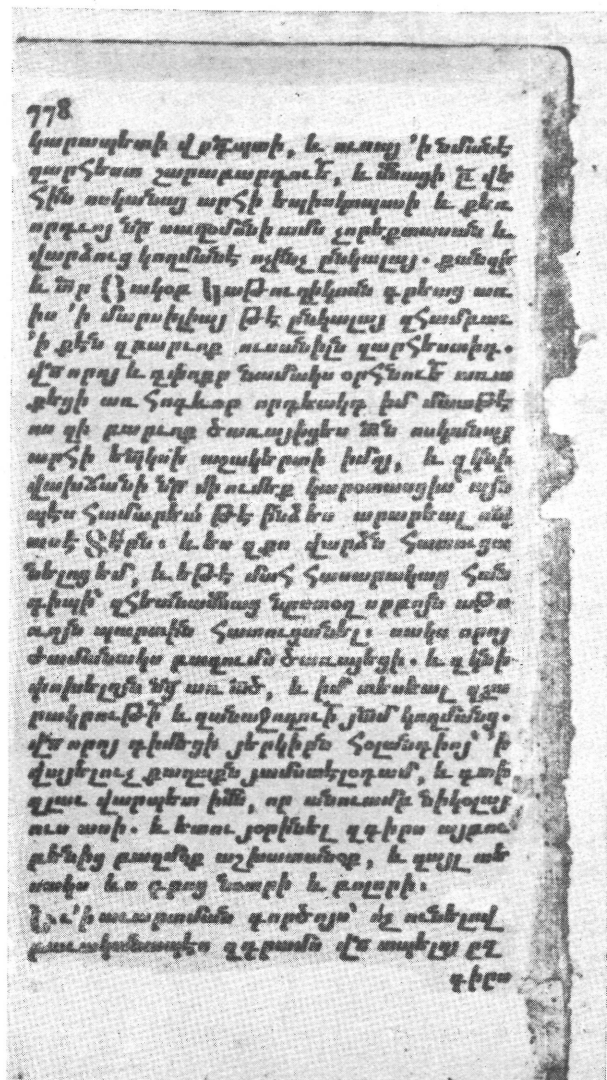 778
կարապետի վրդպտի, և ուսայ ՚ի նմանէ
զարհեստ շարաբարդուե, և մնացի
հին ոսկանայ արհի եպիսկոպոսի և քեռ
որդւոյ նր սաղմնի ամս չորեքտասան և
վարձուց կողմանէ ոչինչ ընկալայ. քանզի
և տր Յակոբ կաթուղիկոսն գրեաց առ
իս ՚ի մարսիլիայ թէ ընկալայ զհամբաւ
՚ի քէն զբարւոք ուսանիլն զարհեստիդ.
վս որոյ և դփոքր նամակս օրհնուե առա
քեցի առ հոգևոր որդեակդ իմ մատթէ
ոս զի բարւոք ծառայիցես տն ոսկանայ
արհի եպկսի աշակերտի իմոյ, և զկնի
վախճանի նր մի ումեք կարօտասցիս այն
պէս համարեա թէ ինձ ես արարեալ
ասէ տէրն. և ես զքո վարձն հատուցա
նելոց եմ, և եթէ մահ հասարակաց հան
դիպի՝ զհետևանաց նրստօղ սրբոյն աթո
ռոյն պարտին հատուցանել. սակս որոյ
ժամանակս բազումս ծառայեցի. և զկնի
փոխելոյն նց առ ած, և իմ տեսեալ զչա
րակրուի և զանաջողուի յամ կողմանց.
վս որոյ գիմեցի յերկիրն հօլանդիոյ՝ ի
վայելուչ քաղաքն յամստէլօդամ, և գտի
զլաւ վարպետ իմն, որ անուամբ նիկօլայ
ուս ասի. և ետու յօրինել զգիրս այբու
բենից բազմօք աշխատանօք, և զայլ ան
սակս ևս նօտրի և բոլորի.
Եւ ՚ի աւարտման գործոյս՝ ոչ ունելով
բաւականապէս զդրամն վս տպելոյ ըզ
գիրս